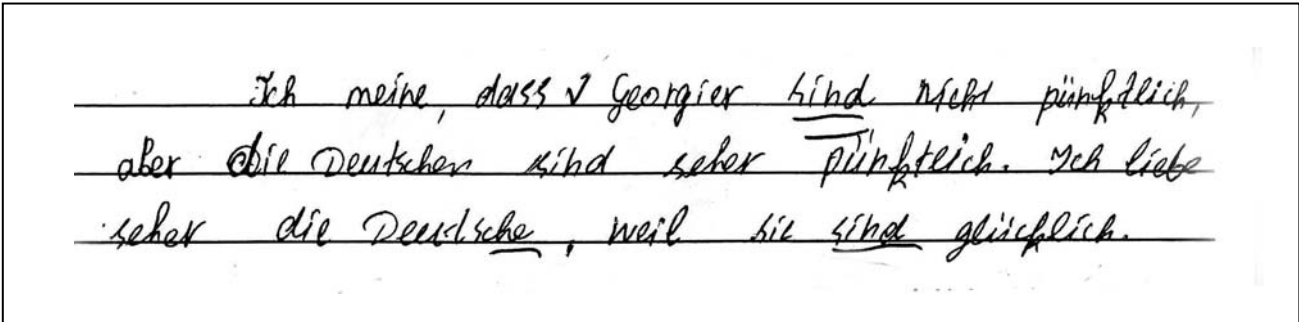 Ich meine, dass √ Georgier sind nicht pünktlich,
aber die Deutschen sind seher pünktlich. Ich liebe
seher die Deutsche, weil sie sind glücklich.